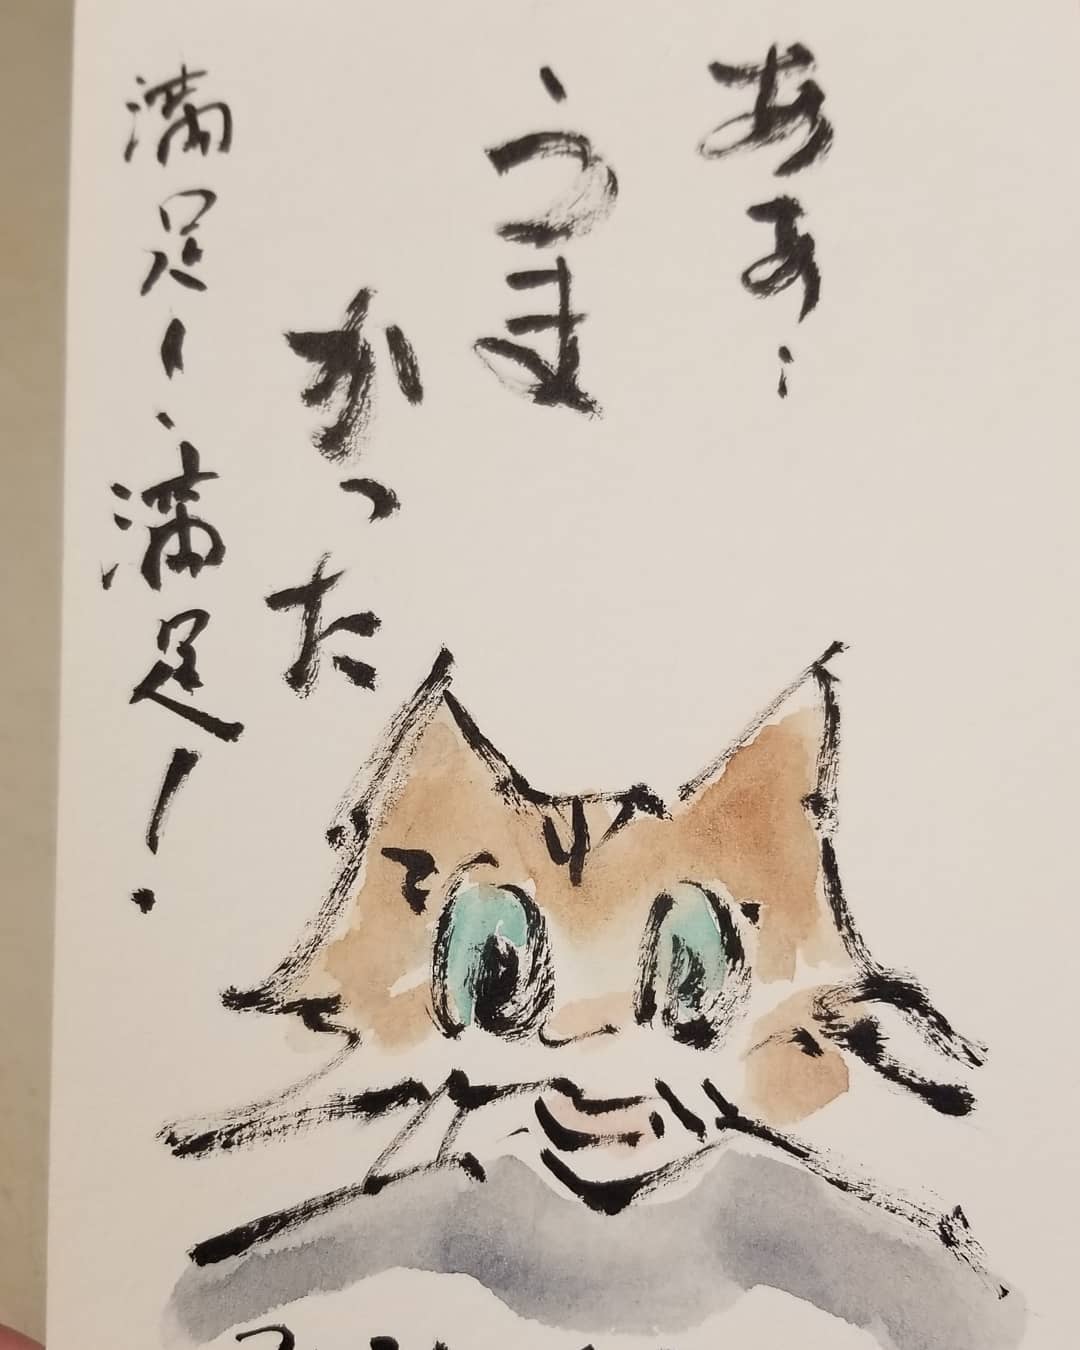 ああ…
うま
かった
満足!、満足!